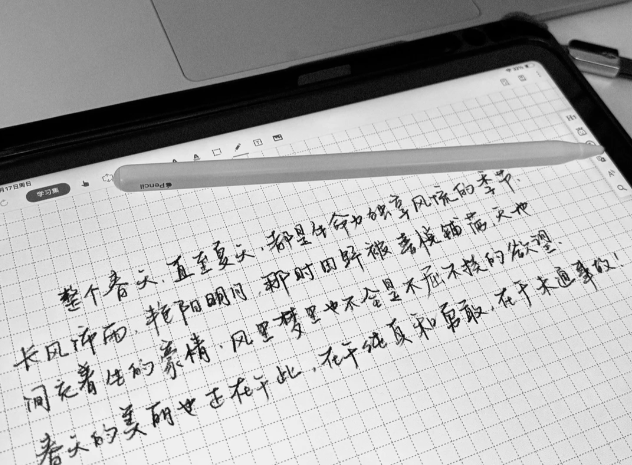 17日周日
学习集
Pencil
整个春天,直至夏天,都是生命力独享风流的季节.
长风沛雨,艳阳明月,那时田野被喜悦铺满,天地
间充着生的豪情,风里梦里也全是不屈不挠的欲望.
春天的美丽也正在于此,在于纯真和勇敢,在于未通世故!